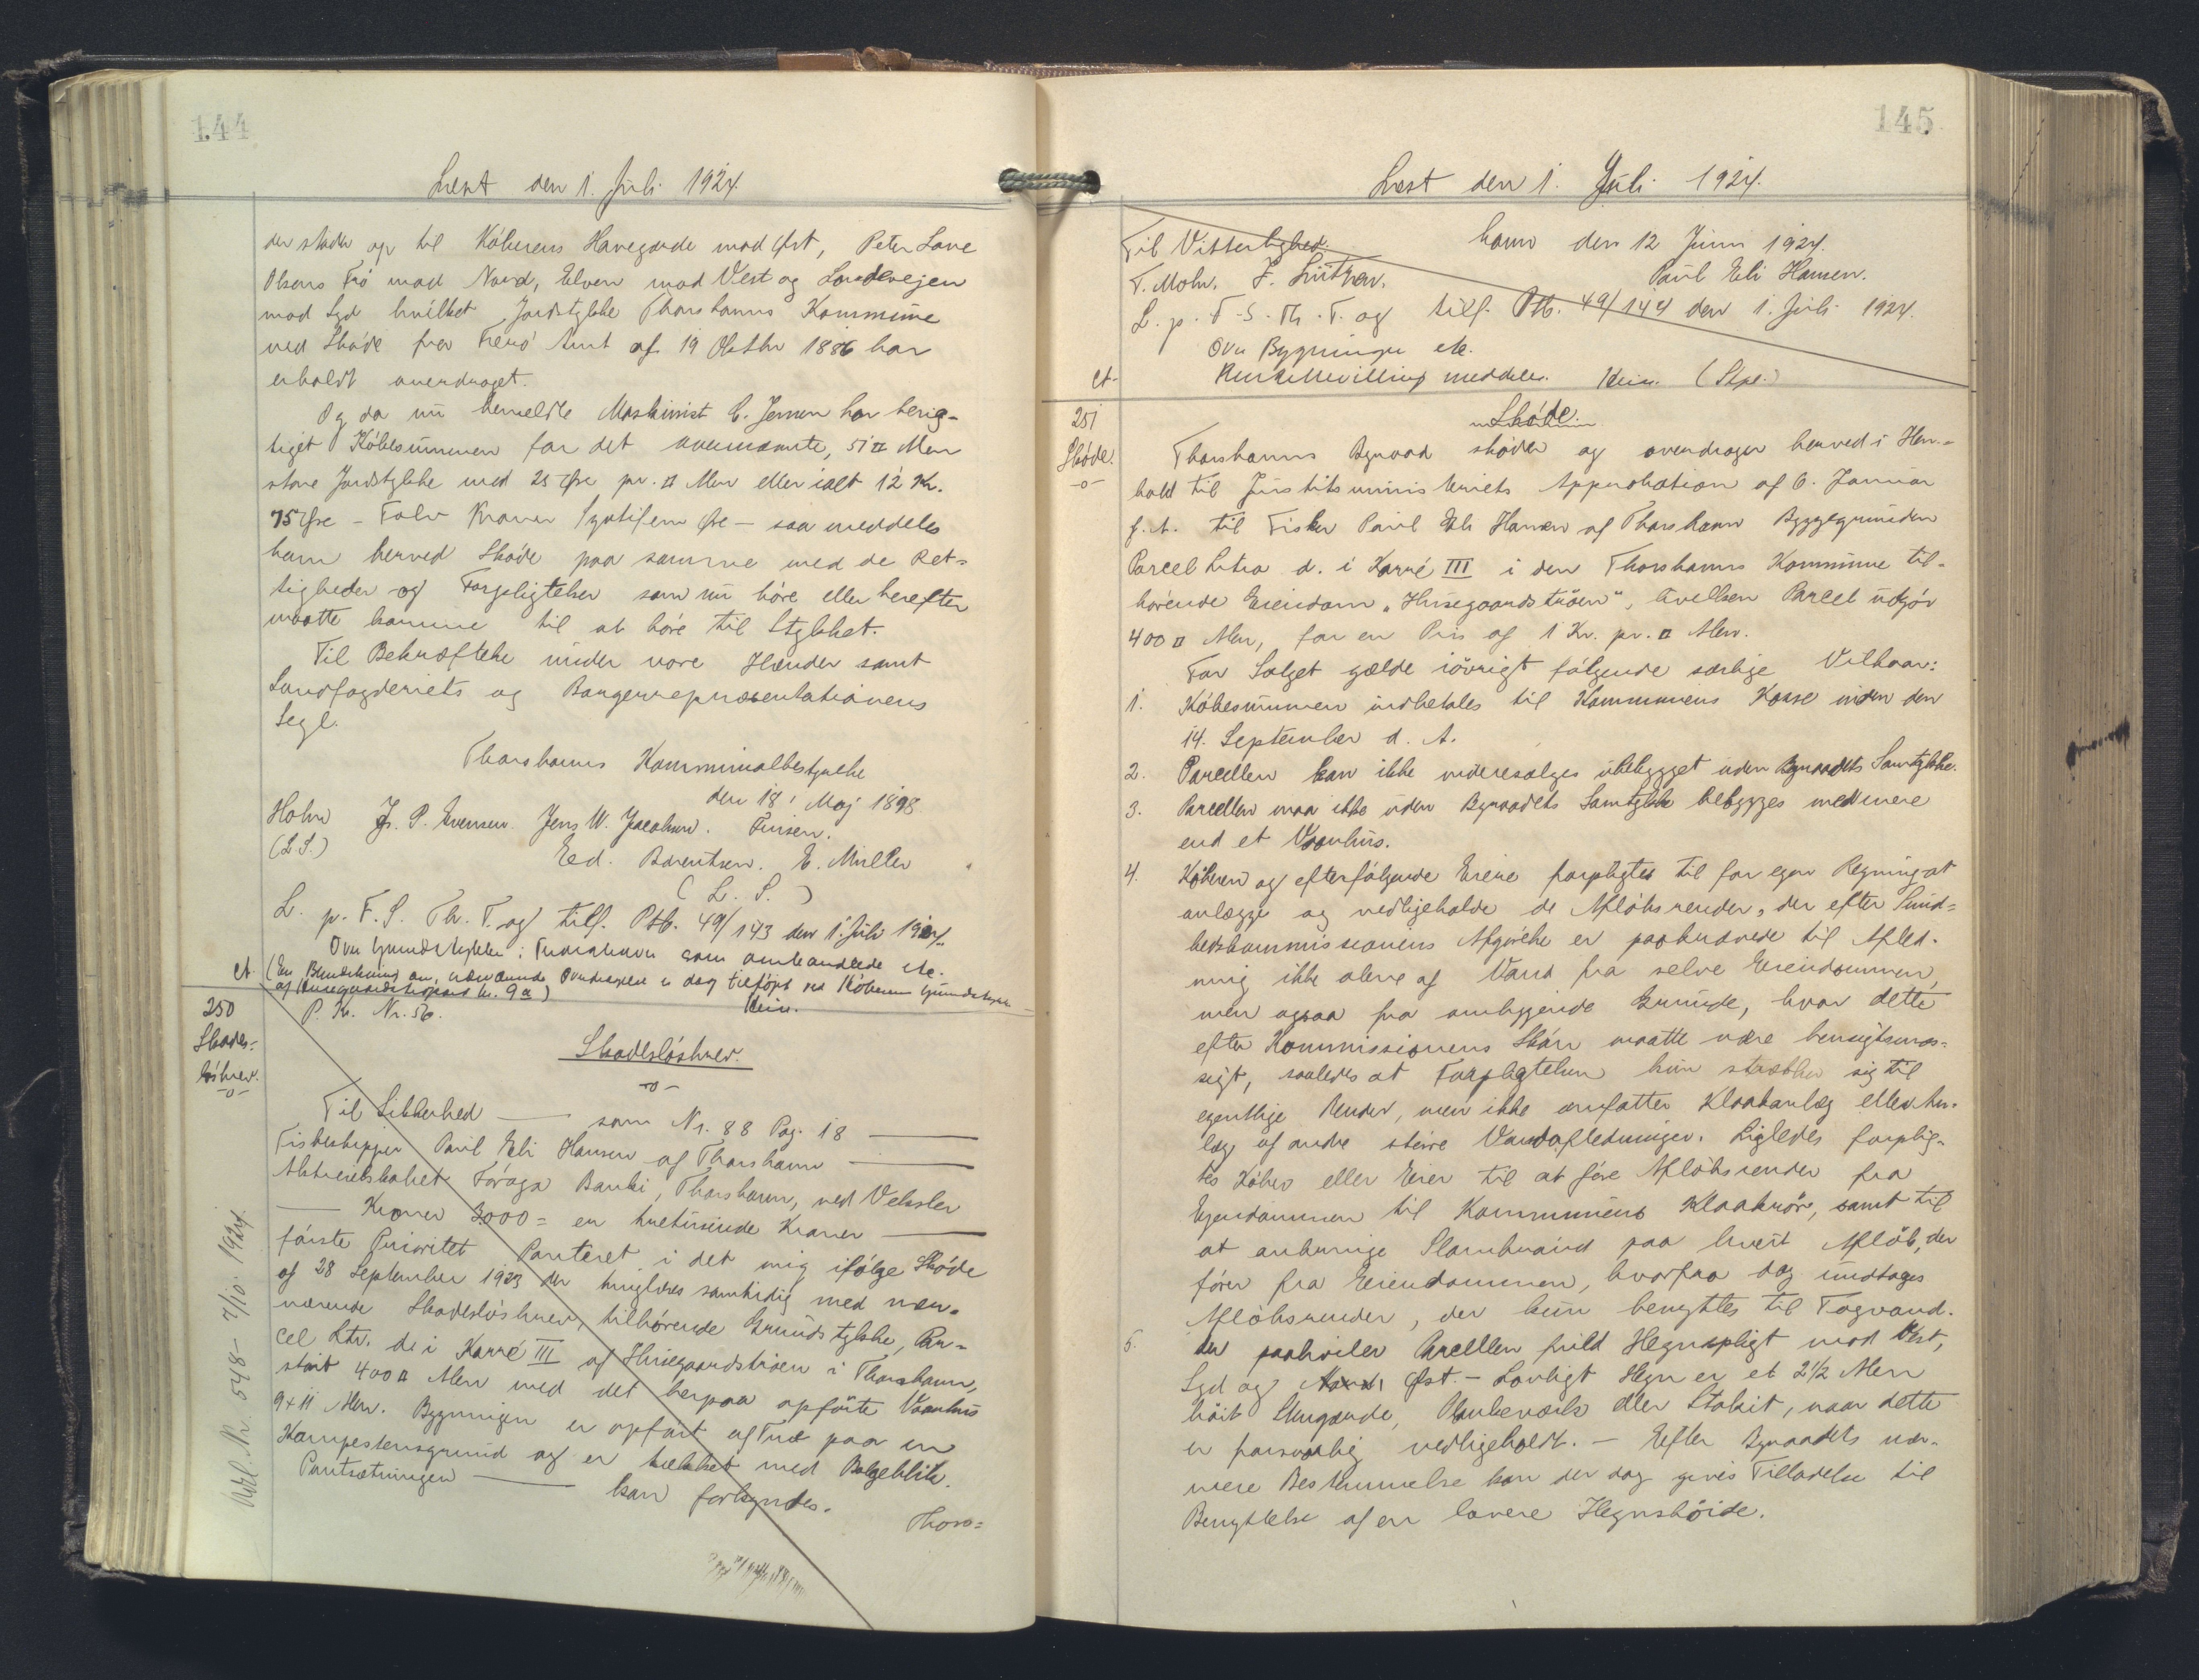 144
Læst den 1. Juli 1924.
der støder op til Köberens Havegærde mod Öst, Peter Lave
Olsens Trö mod Nord, Elven mod Vest og Landevejen
mod Syd hvilket Jordstykke Thorshavns Kommune
ved Sköde fra Færö Amt af 19 Oktbr 1886 har
erholdt overdraget.
Og da nu bemeldte Maskinist C. Jensen har berig-
tiget Köbesummen for det ovennævnte, 51 □ Alen
store Jordstykke med 25 Øre pr. □ Alen eller ialt 12 Kr.
75 Øre - Tolv Kroner Syvtifem Øre - saa meddeles
ham herved Sköde paa samme med de Ret-
tigheder og Forpligtelser som nu höre eller herefter
maatte komme til at höre til Stykket.
Til Bekræftelse under vore Hænder samt
Landfogderiets og Borgerrepræsentationens
Segl.
Thorshavns Kommunalbestyrelse
den 18' Maj 1898.
Holm J. P. Evensen. Jens W. Jacobsen. Finsen.
(L S.) Ed. Barentsen. E. Müller
( L. S. )
L. p. F. S. Th. T. og tilf. Ptb. 49/143 den 1. Juli 1924.
Over Grundstykke i Thorshavn som omhandlede etc.
Ct. (En Bemærkning om, nærværende Overdragelse er dag tilföjet ved Köberens Grundstykke
af Husegaardstrøens Nr. 9a) Heim.
250 P. Kr. Nr. 56.
Skades-
löshrev.
-o-
Skadeslöshrev.
-o-
Til Sikkerhed — som Nr. 88 Pag. 18 —
Fiskeskipper Paul Eli Hansen af Thorshavn —
Aktieselskabet Föroya Banki, Thorshavn, ved Veksler
— Kroner 3000 = er tretusinde Kroner —
förste Prioritet Panteret i det mig ifölge Sköde
af 28 September 1923 der tinglæses samtidig med nær-
værende Skadeslöshrev, tilhörende Grundstykke, Par-
cel Ltr. d. i Karré III af Husegaardströen i Thorshavn,
stort 400 □ Alen med det herpaa opförte Vaanhus
9 x 11 Alen. Bygningen er opfört af Træ paa en
Kampestensgrund og er tækket med Bølgeblik.
Pantsætningen — kan forkyndes.
Thors=
Udsl. Nr. 548 - 7/10. 1924.
145
Læst den 1. Juli 1924.
Til Vitterlighed. havn den 12 Juni 1924.
T. Mohr. F. Lützen. Paul Eli Hansen.
L. p. F. S. Th. T. og tilf. Ptb. 49/144 den 1. Juli 1924.
Over Bygninger etc.
Ct. meddeles. Heim. (Stpl.)
251
Sköde.
-o-
Sköde.
Thorshavns Byraad sköder og overdrager herved i Hen-
hold til Justitsministeriets Approbation af 6. Januar
f. A. til Fisker Paul Eli Hansen af Thorshavn Byggegrunden
Parcel Litra d. i Karré III i den Thorshavns Kommune til-
hörende Eiendom "Husegaardströen", hvilken Parcel udgör
400 □ Alen, for en Pris af 1 Kr. pr. □ Alen.
For Salget gælde iövrigt fölgende særlige Vilkaar:
1. Köbesummen indbetales til Kommunens Kasse inden den
14. September d. A.
2. Parcellen kan ikke videresælges ubebygget uden Byraadets Samtykke.
3. Parcellen maa ikke uden Byraadets Samtykke bebygges med mere
end et Vaanhus.
4. Köberen og efterfölgende Eiere forpligtes til for egen Regning at
anlægge og vedligeholde de Aflöbsrender, der efter Sund-
hedskommissionens Afgörelse er paakrævede til Afled-
ning ikke alene af Vand fra selve Eiendommen,
men ogsaa fra omliggende Grunde, hvor dette
efter Kommissionens Skön maatte være hensigtsmæs-
sigt, saaledes at Forpligtelsen kun strækker sig til
egentlige Render, men ikke omfatter Kloakanlæg eller An-
læg af andre större Vandafledninger. Ligeledes forplig-
tes Köber eller Eier til at före Aflöbsrender fra
Ejendommen til Kommunens Kloakrör, samt til
at anbringe Slambrönd paa hvert Aflöb, der
förer fra Eiendommen, hvorfra dog undtages
Aflöbsrender, der kun benyttes til Tagvand.
5. Der paahviler Parcellen fuld Hegnspligt mod Vest,
Syd og Øst. - Lovligt Hegn er et 2 1/2 Alen
höit Stengærde, Plankeværk eller Stakit, naar dette
er forsvarlig vedligeholdt. - Efter Byraadets nær-
mere Bestemmelse kan der dog gives Tilladelse til
Benyttelse af en lavere Hegnshöide.